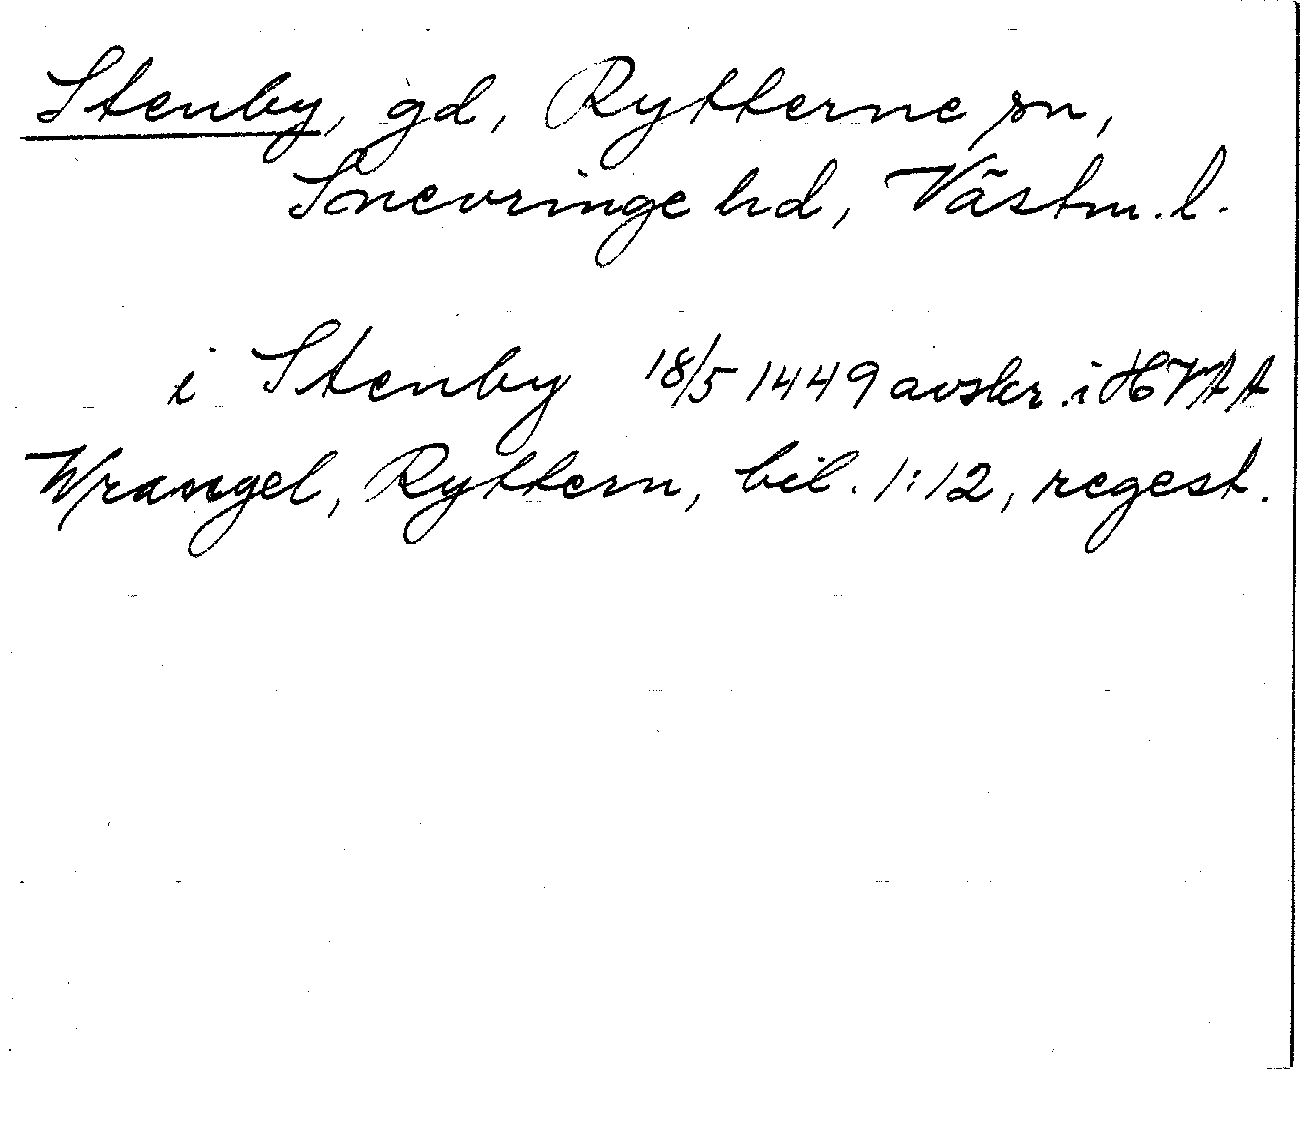 Stenby, gd, Rytterne sn,
Snevringe hd, Västm. l.
i Stenby 18/5 1449 avskr. i HVAA
Wrangel, Ryttern, bil. 1:12, regest.